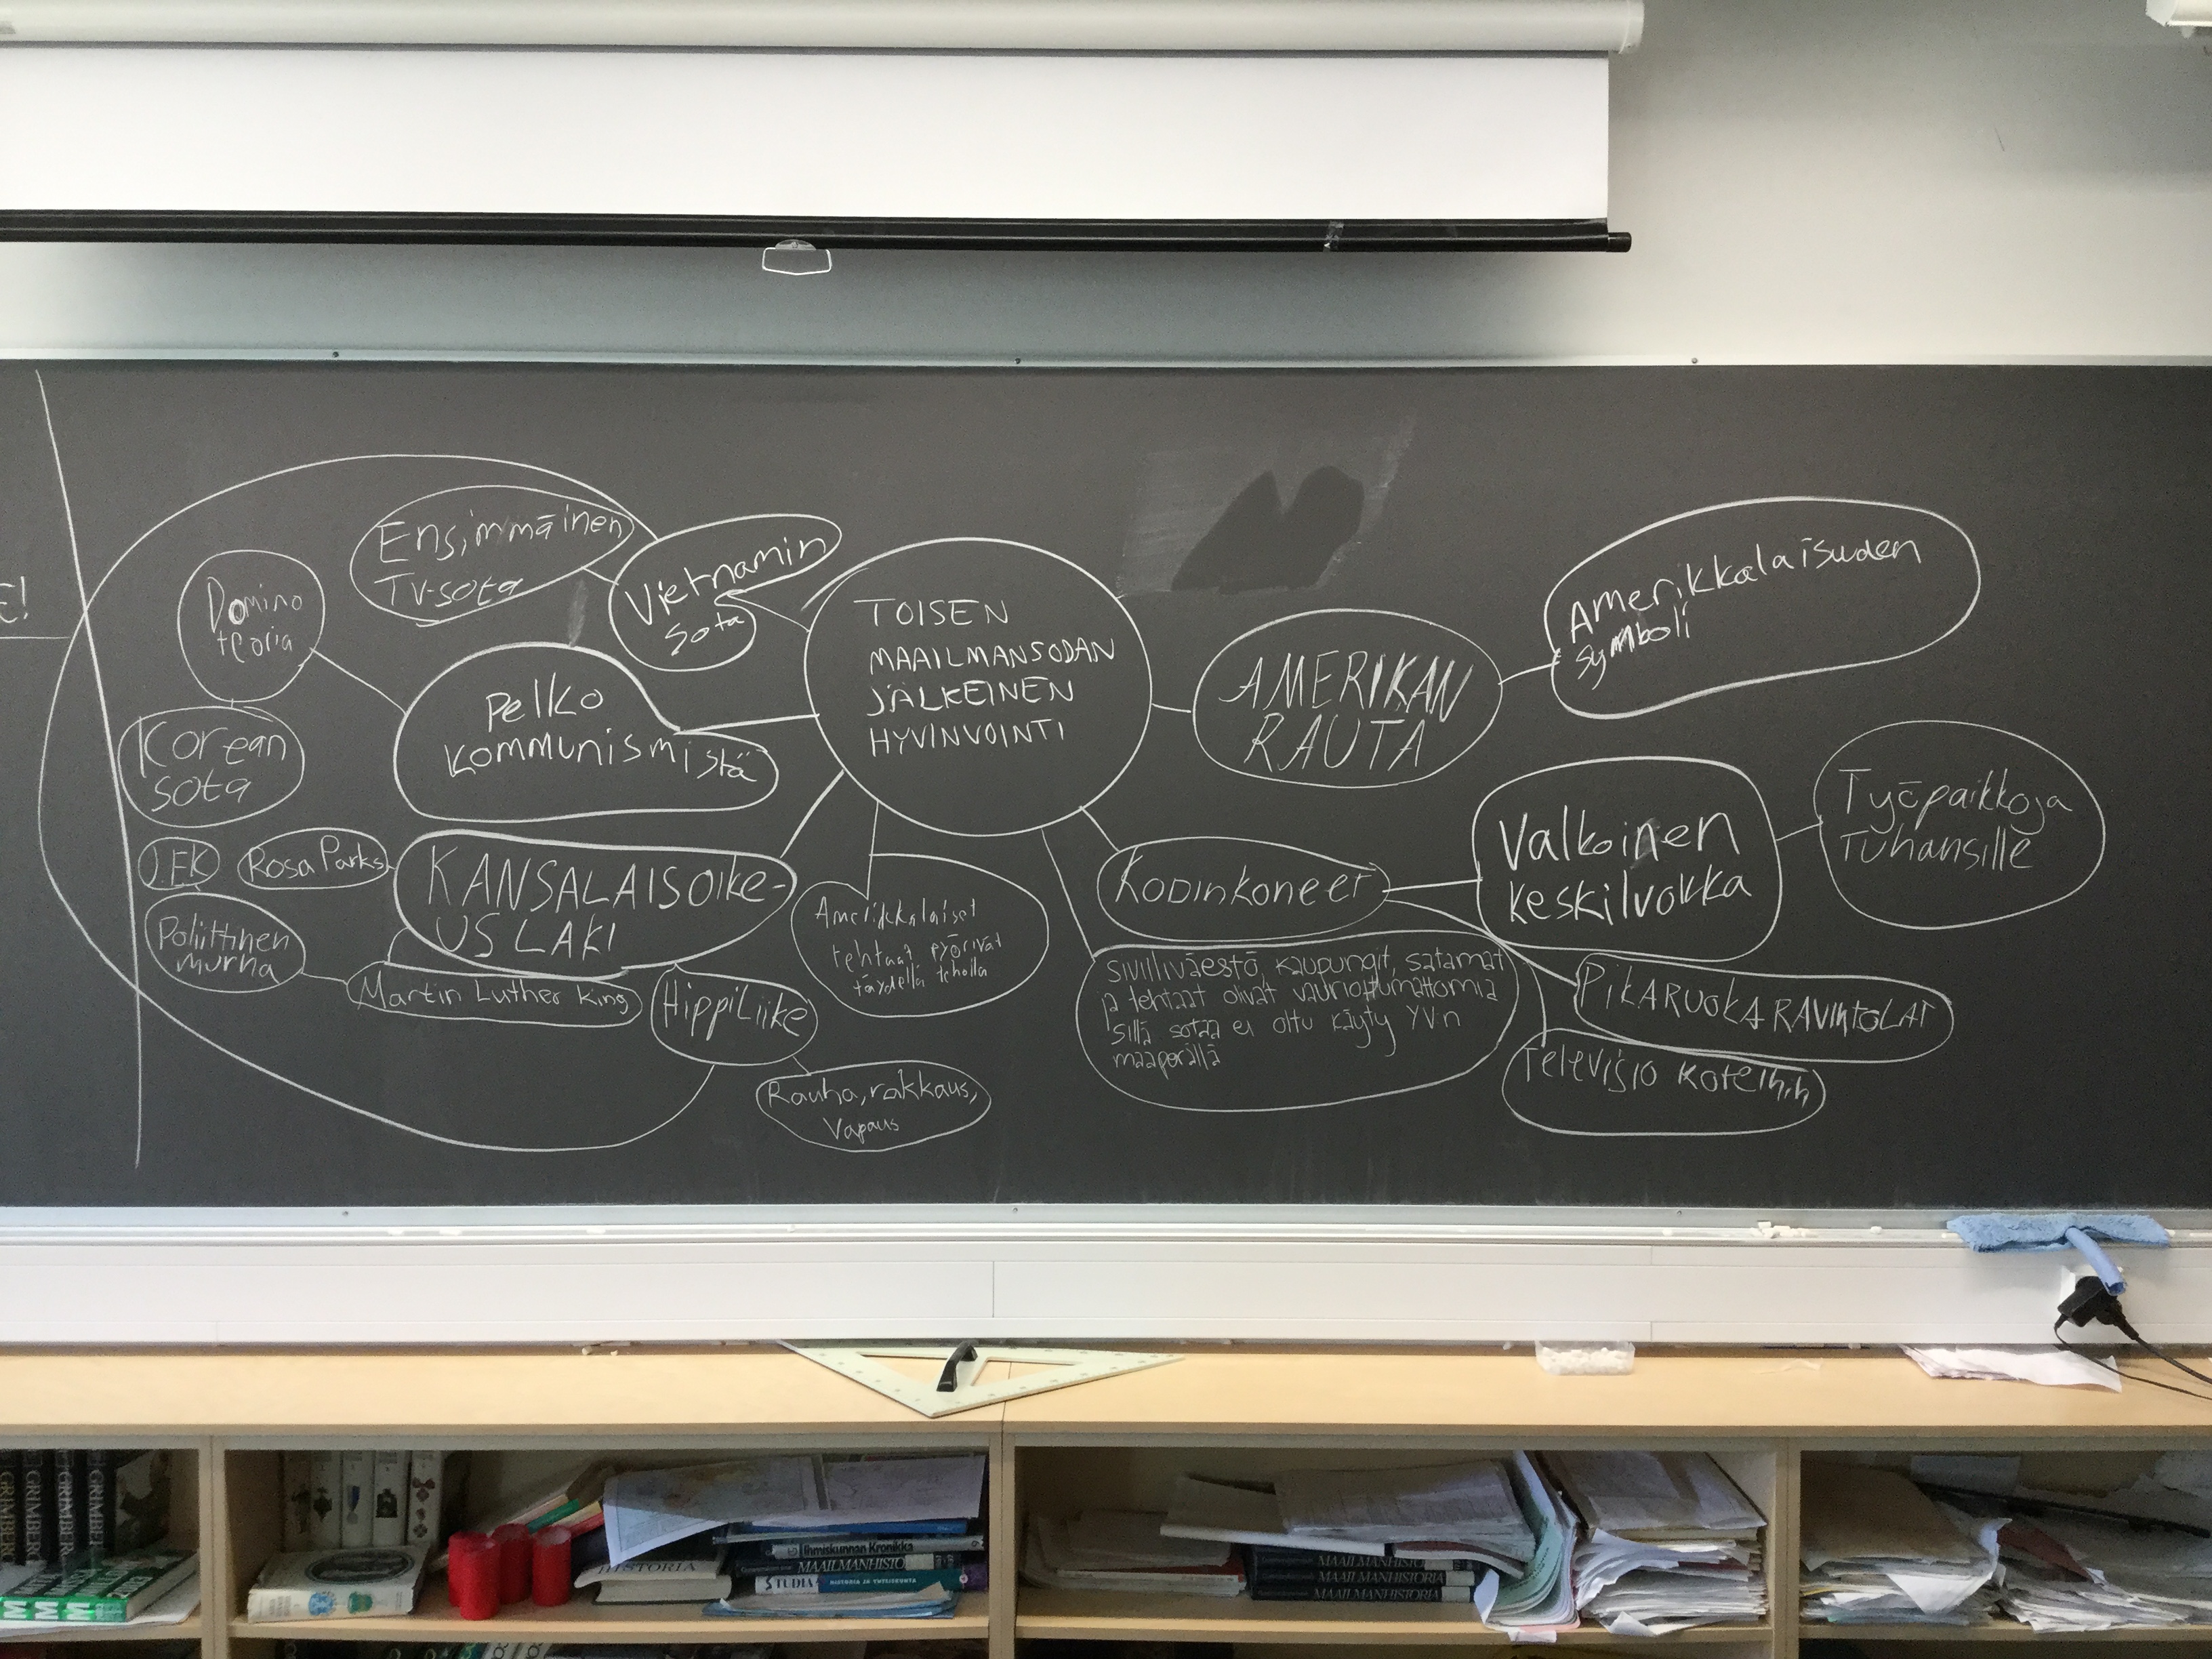 E!
Ensimmäinen
TV-sota
Vietnamin
sota
Domino
teoria
Pelko
kommunismistä
Korean
sota
J.F.K
Rosa Parks
KANSALAISOIKE-
US LAKI
Poliittinen
murha
Martin Luther King
Hippiliike
Rauha, rakkaus,
vapaus
TOISEN
MAAILMANSODAN
JÄLKEINEN
HYVINVOINTI
Amerikkalaiset
tehtaat pyörivät
täydellä teholla
AMERIKAN
RAUTA
Amerikkalaisuuden
symboli
KODINKONEET
Valkoinen
keskiluokka
Työpaikkoja
Tuhansille
siviiliväestö, kaupungit, satamat
ja tehtaat olivat vaurioitumattomia
sillä sotaa ei oltu käyty YV:n
maaperällä
PIKARUOKARAVINTOLAT
TELEVISIO KOTEIHIN
GRIMBERG
GRIMBERG
GRIMBERG
GRIMBERG
HISTORIA
Ihmiskunnan Kronikka
MAAILMANHISTO
STUDIA HISTORIA JA YHTEISKUNTA
MAAILMANHISTORIA
MAAILMANHISTORIA
MAAILMANHISTORIA